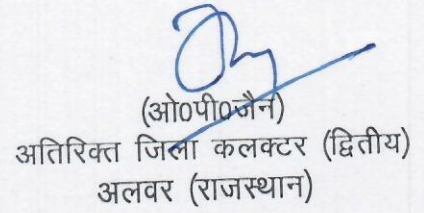 (ओ0पी0जैन)
अतिरिक्त जिला कलक्टर (द्वितीय)
अलवर (राजस्थान)